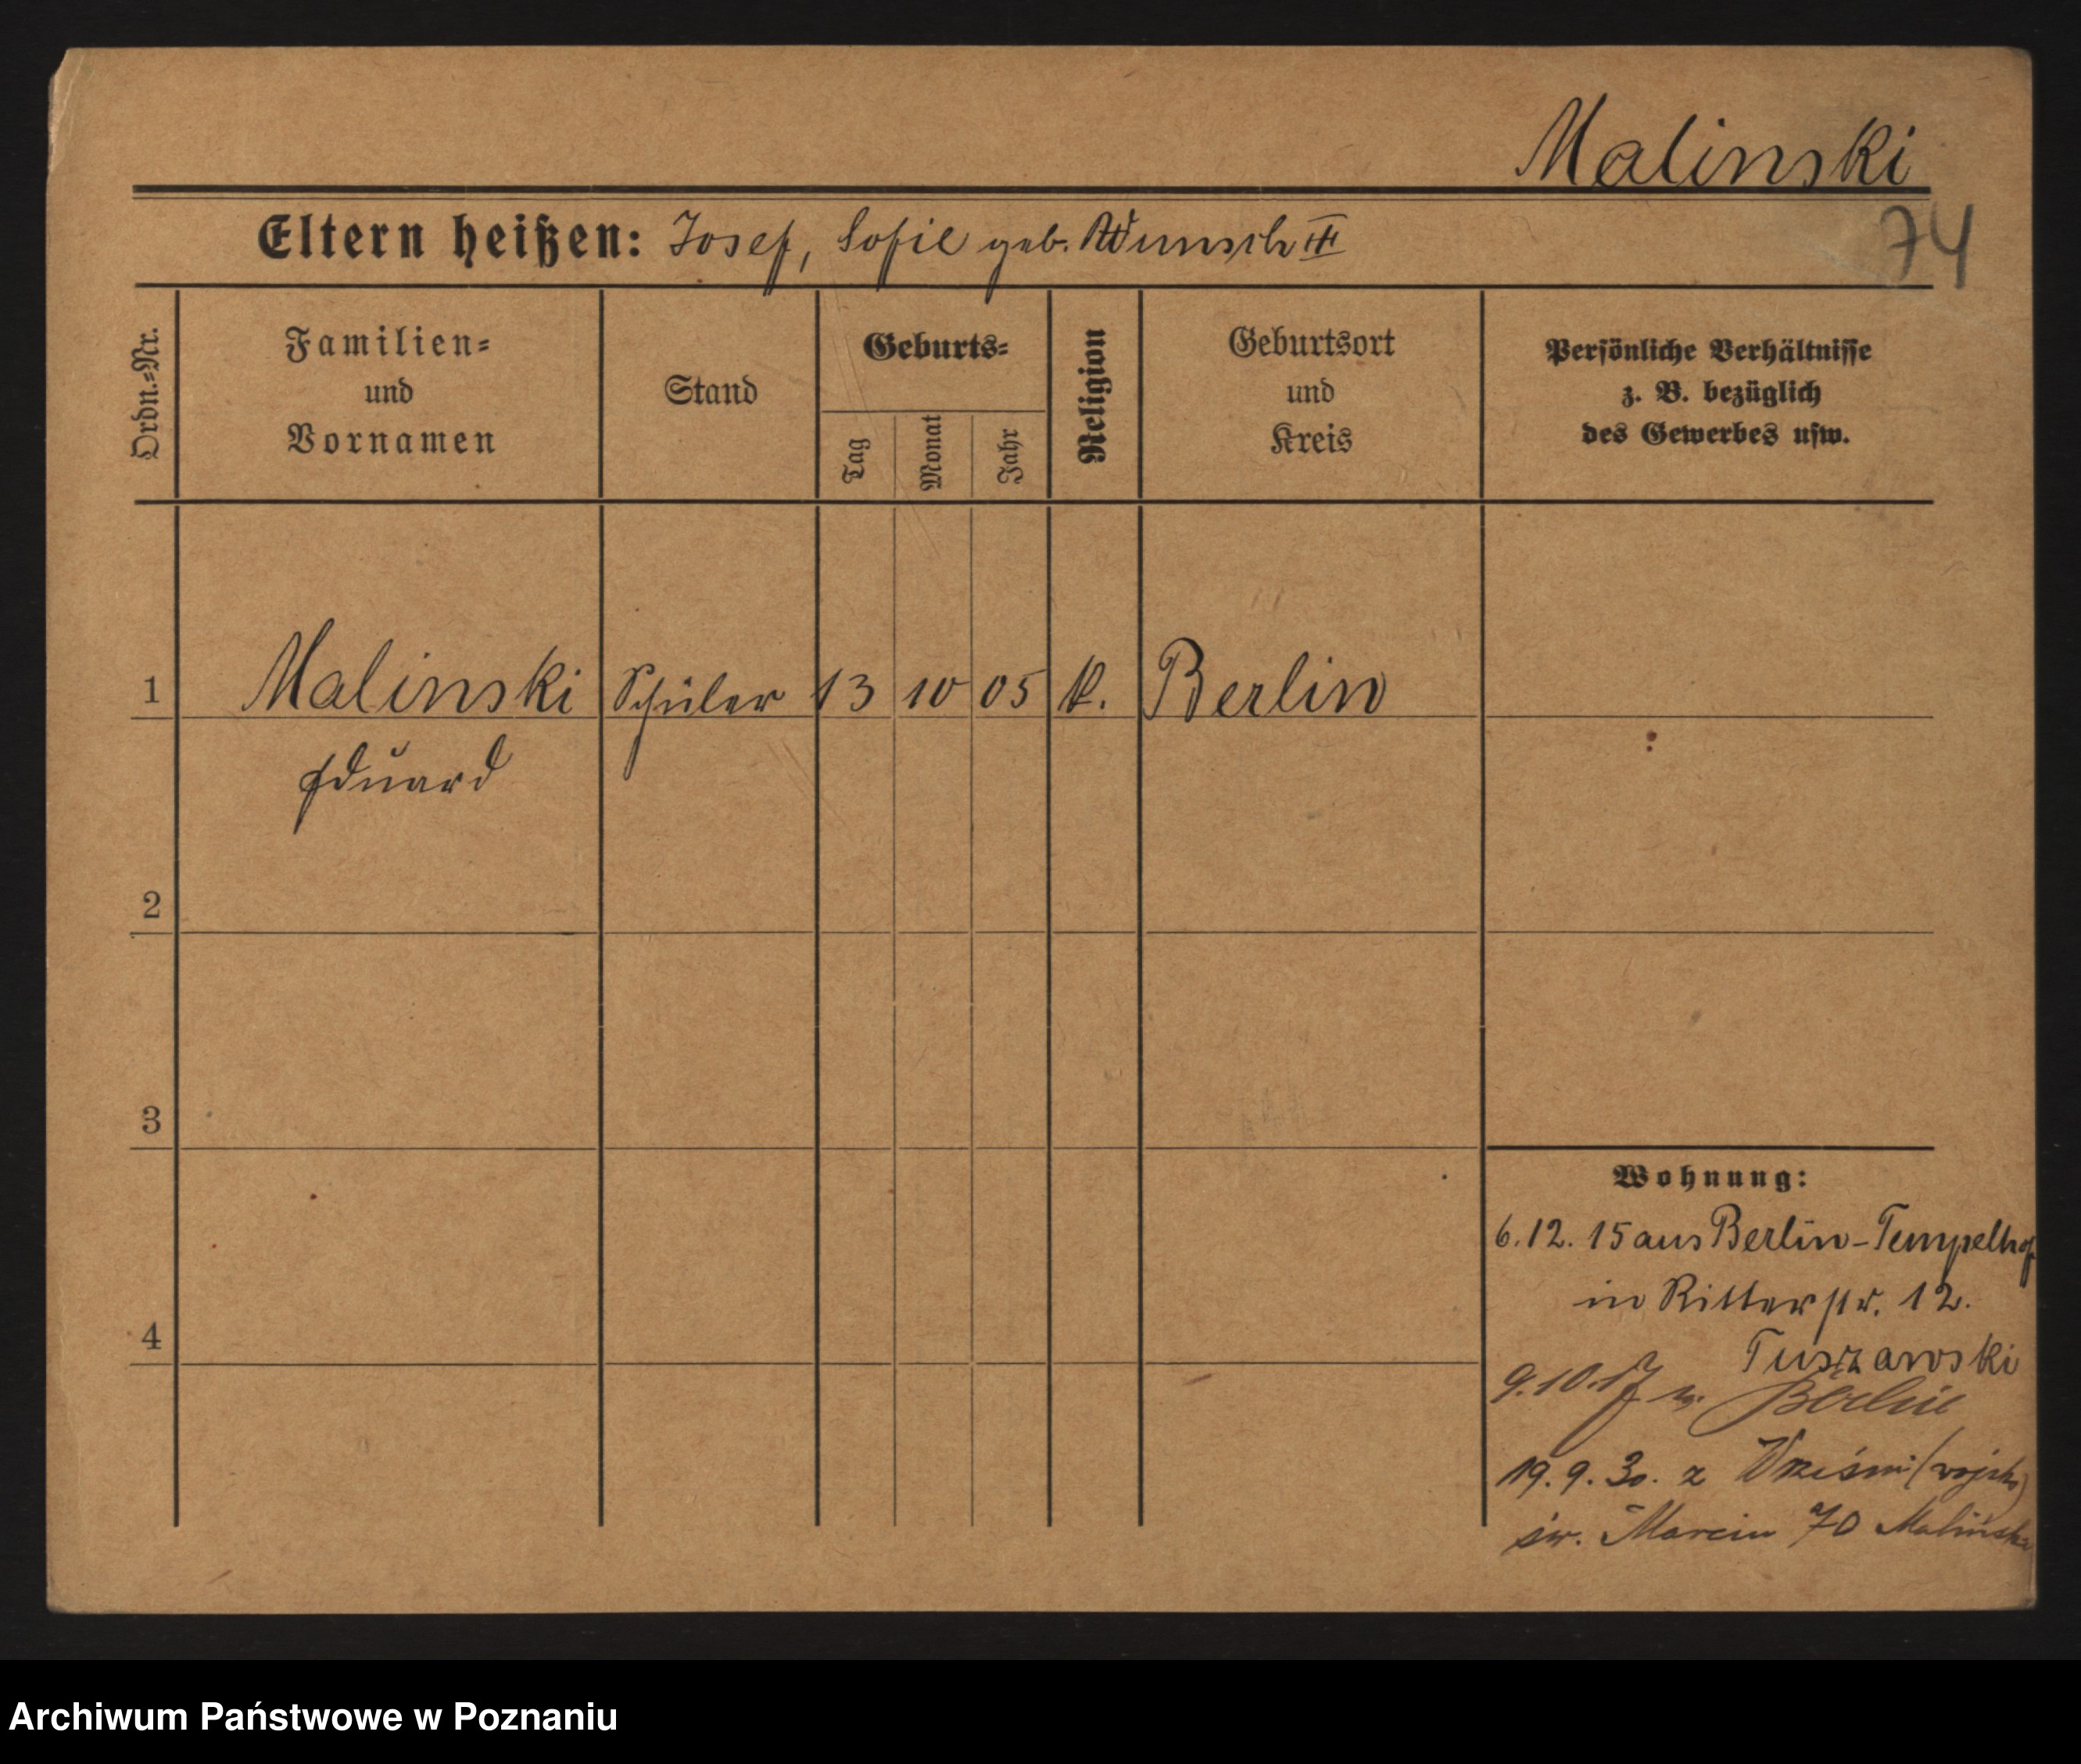 Malinski
Eltern heißen: Josef, Sofie geb. Wunsch III
74
Ordn.=Nr.
Familien=
und
Vornamen
Stand
Geburts=
Tag
Monat
Jahr
Religion
Geburtsort
und
Kreis
Persönliche Verhältnisse
z. B. bezüglich
des Gewerbes usw.
1 Malinski Schüler 13 10 05 k. Berlin
Eduard
2
3
4
Wohnung:
6.12.15 aus Berlin-Tempelhof
in Ritterstr. 12.
Tuszawski
9.10.17 n. Berlin
19.9.30. z Wrześni (wojsko)
św. Marcin 70 Malińska
Archiwum Państwowe w Poznaniu